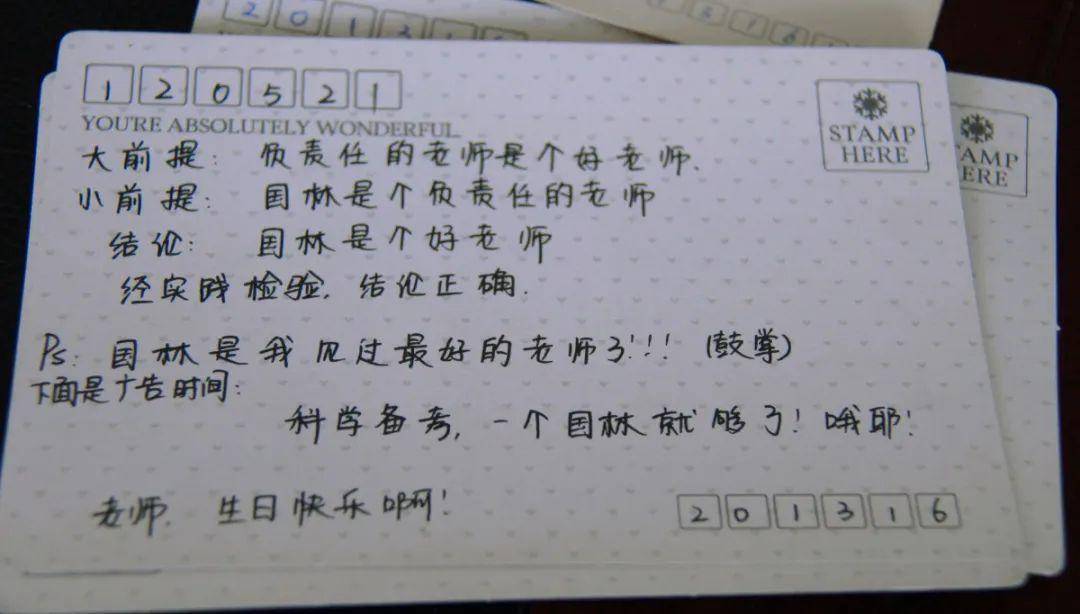 201316
120521
YOU'RE ABSOLUTELY WONDERFUL
STAMP
HERE
大前提: 负责任的老师是个好老师.
小前提: 国林是个负责任的老师
结论: 国林是个好老师
经实践检验, 结论正确.
Ps: 国林是我见过最好的老师了!!! (鼓掌)
下面是广告时间:
科学备考, 一个国林就够了! 哦耶!
老师, 生日快乐啊!
201316
AMP
ERE